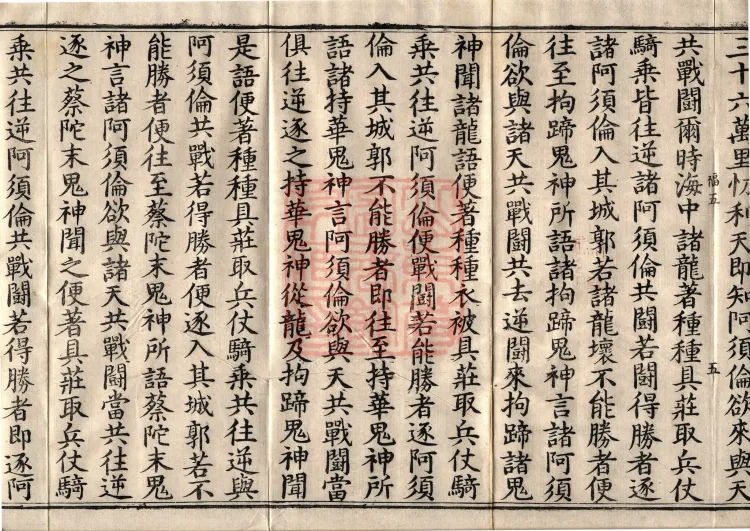 三十六萬里忉利天即知阿須倫欲來與天
共戰鬪爾時海中諸龍著種種具莊取兵仗
騎乘皆往逆諸阿須倫共鬪若鬪得勝者逐
諸阿須倫入其城郭若諸龍壞不能勝者便
往至拘蹄鬼神所語諸拘蹄鬼神言諸阿須
倫欲與諸天共戰鬪共去逆鬪來拘蹄諸鬼
神聞諸龍語便著種種衣被具莊取兵仗騎
乘共往逆阿須倫便戰鬪若能勝者逐阿須
倫入其城郭不能勝者即往至持華鬼神所
語諸持華鬼神言阿須倫欲與天共戰鬪當
俱往逆逐之持華鬼神從龍及拘蹄鬼神聞
是語便著種種具莊取兵仗騎乘共往逆與
阿須倫共戰若得勝者便逐入其城郭若不
能勝者便往至蔡陀末鬼神所語蔡陀末鬼
神言諸阿須倫欲與諸天共戰鬪當共往逆
逐之蔡陀末鬼神聞之便著具莊取兵仗騎
乘共往逆阿須倫共戰鬪若得勝者即逐阿
五